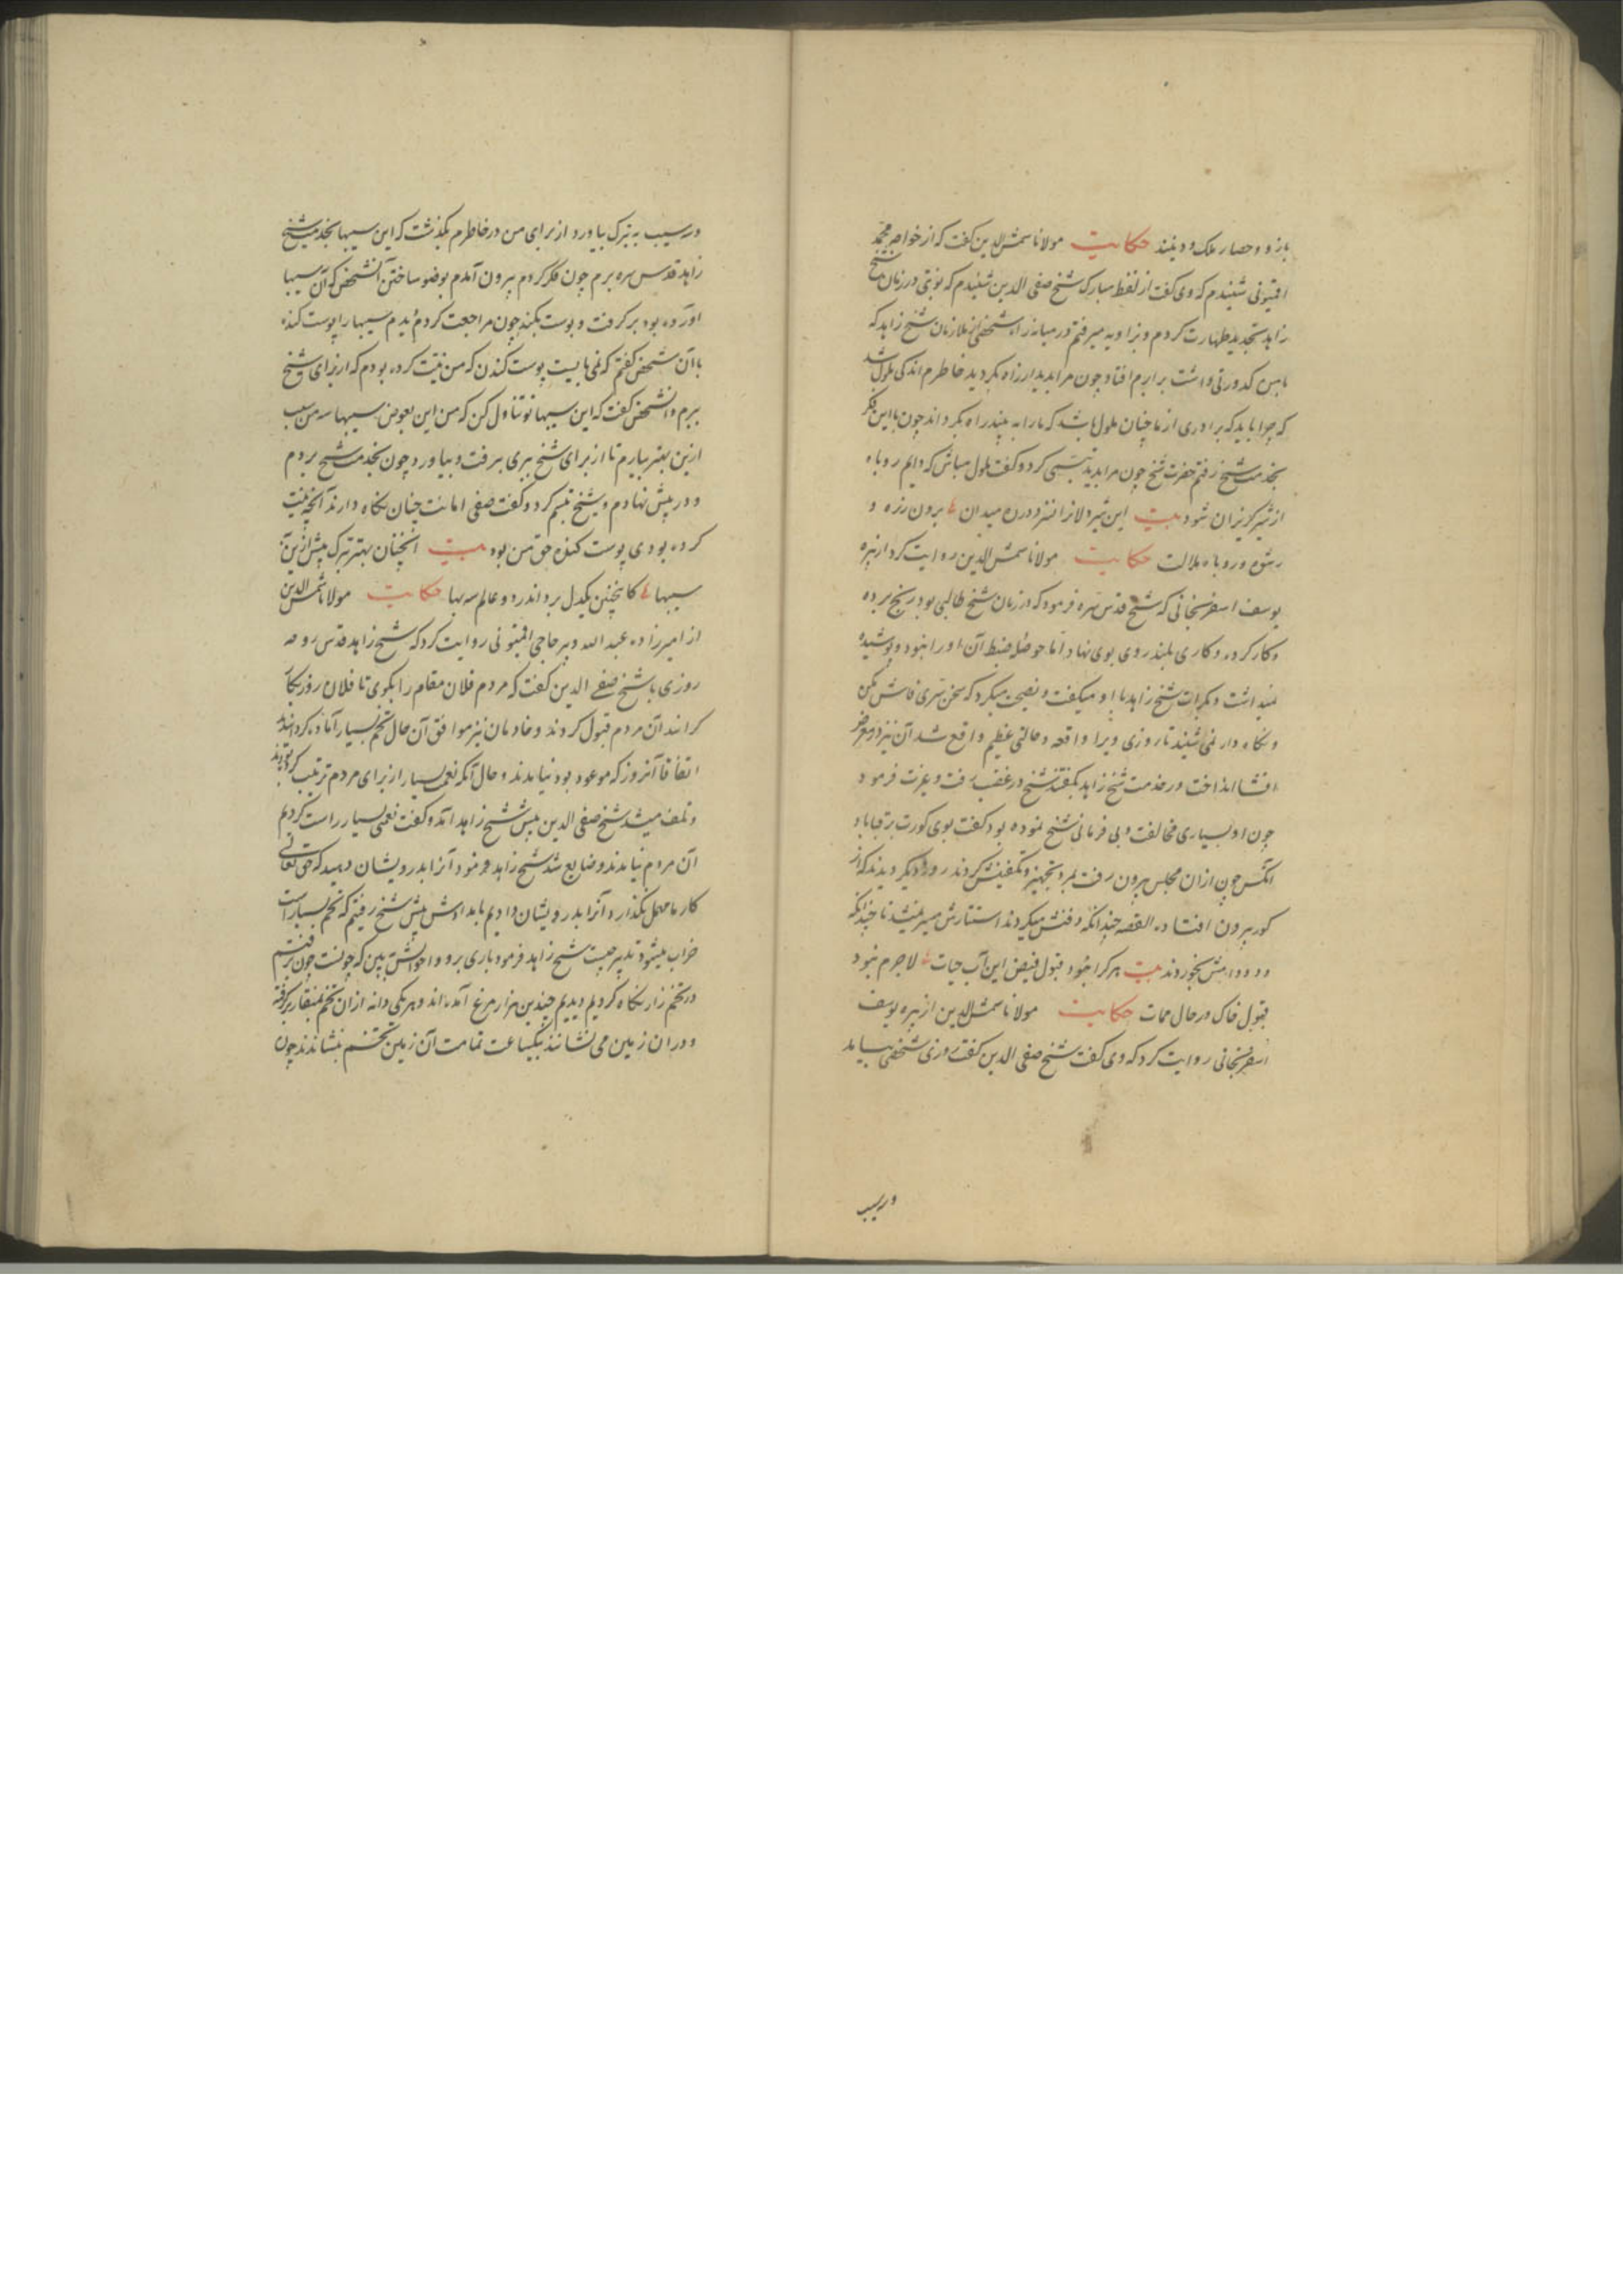 بازو و حصار ملک و دینند حکایت مولانا شمس الدین گفت که از خواجه محمد
شنیدم که وی گفت از لفظ مبارک شیخ صفی الدین شنیدم که نوبتی در زمان شیخ
زاهد تجدید طهارت کردم و بزاویه میرفتم در میانه راه شخصی از ملازمان شیخ زاهد که
با من کدورتی داشت برابرم افتاد چون مرا بدید از راه بگردید خاطرم اندکی ملول شد
که چرا باید که برادری از ما چنان ملول باشد که ما را به بیند راه بگرداند چون با این فکر
بخدمت شیخ رفتم حضرت شیخ چون مرا بدید تبسمی کرد و گفت ملول مباش که دایم روباه
از شیر گریزان شود بیت این شیر دلانرا در میدان برون زره و
روباه ملالت حکایت مولانا شمس الدین روایت کرد از پیره
یوسف که شیخ قدس سره فرمود که در زمان شیخ طالبی بود رنج برده
و کار کرده و کاری بلند روی بوی نهاد اما حوصله ضبط آن او را نبود و پوشیده
نمیداشت و بکرات شیخ زاهد با او میگفت و نصیحت میکرد که سخن سری فاش مکن
و نگاه دار نمی شنید تا روزی ویرا واقعه و حالتی عظیم واقع شد آن نیز در معرض
افشا انداخت در خدمت شیخ زاهد بگفتند شیخ در غضب رفت و بغرت فرمود
چون او بسیاری مخالفت و بی فرمانی شیخ نموده بود گفت بوی گورت
آنکس چون از آن مجلس بیرون رفت بمرد تجهیز و تکفینش کردند روز دیگر دیدند که از
گور بیرون افتاده القصه چندانکه دفنش میکردند استتارش میسر نمیشد تا چندانکه
دد و دامش بخوردند بیت هر کرا نبود قبول فیض این آب حیات لاجرم نبود
قبول خاک در حال ممات حکایت مولانا شمس الدین از پیره یوسف
روایت کرد که وی گفت شیخ صفی الدین گفت روزی شخصی بیامد
در سیب
در سیب به تبرک بیاورد از برای من در خاطرم بگذشت که این سیبها بخدمت شیخ
زاهد قدس سره برم چون فکر کردم بیرون آمدم بوضو ساختن آنشخص که آن سیبها
آورده بود بر گرفت و پوست بکند چون مراجعت کردم دیدم سیبها را پوست کنده
با آن شخص گفتم که نمی بایست پوست کندن که من نیت کرده بودم که از برای شیخ
برم و آنشخص گفت که این سیبها تو تناول کن که من این بعوض سیبها سه من سیب
ازین بهتر بیارم تا از برای شیخ بری برفت و بیاورد چون بخدمت شیخ بردم
و در پیش نهادم شیخ تبسم کرد و گفت صفی امانت چنان نگاه دارند آنچه نیت
کرده بودی پوست کنده حق من بود بیت آنچنان بهتر تبرک پیش ازین
سیبها کاینچنین یکدل برد اندر دو عالم حکایت مولانا شمس الدین
از امیرزاده عبد الله و پیر حاجی روایت کرد که شیخ زاهد قدس روحه
روزی با شیخ صفی الدین گفت که مردم فلان مقام را بگوی تا فلان روز بکار
آن مردم قبول کردند و خادمان نیز موافق آن حال تخم بسیار آماده کردانید
اتفاقا آنروز که موعود بود نیامدند و حال آنکه نعمت بسیار از برای مردم ترتیب کرده بودند
و تلف میشد شیخ صفی الدین پیش شیخ زاهد آمد و گفت نعمتی بسیار راست کردیم
آن مردم نیامدند و ضایع شد شیخ زاهد فرمود آنرا بدرویشان دهید که حق تعالی
کار ما مهمل نگذارد آنرا بدرویشان دادیم بامدادش پیش شیخ رفتیم که تخم بسیار است
خراب میشود تدبیر چیست شیخ زاهد فرمود باری برو و احوالش ببین که چونست چون برفتیم
در تخم زار نگاه کردیم دیدیم چندین هزار مرغ آمده اند و هر یکی دانه از آن تخم بمنقار بر گرفته
و در آن زمین می نشانند بیکساعت تمامت آن زمین تخم بنشاندند چون